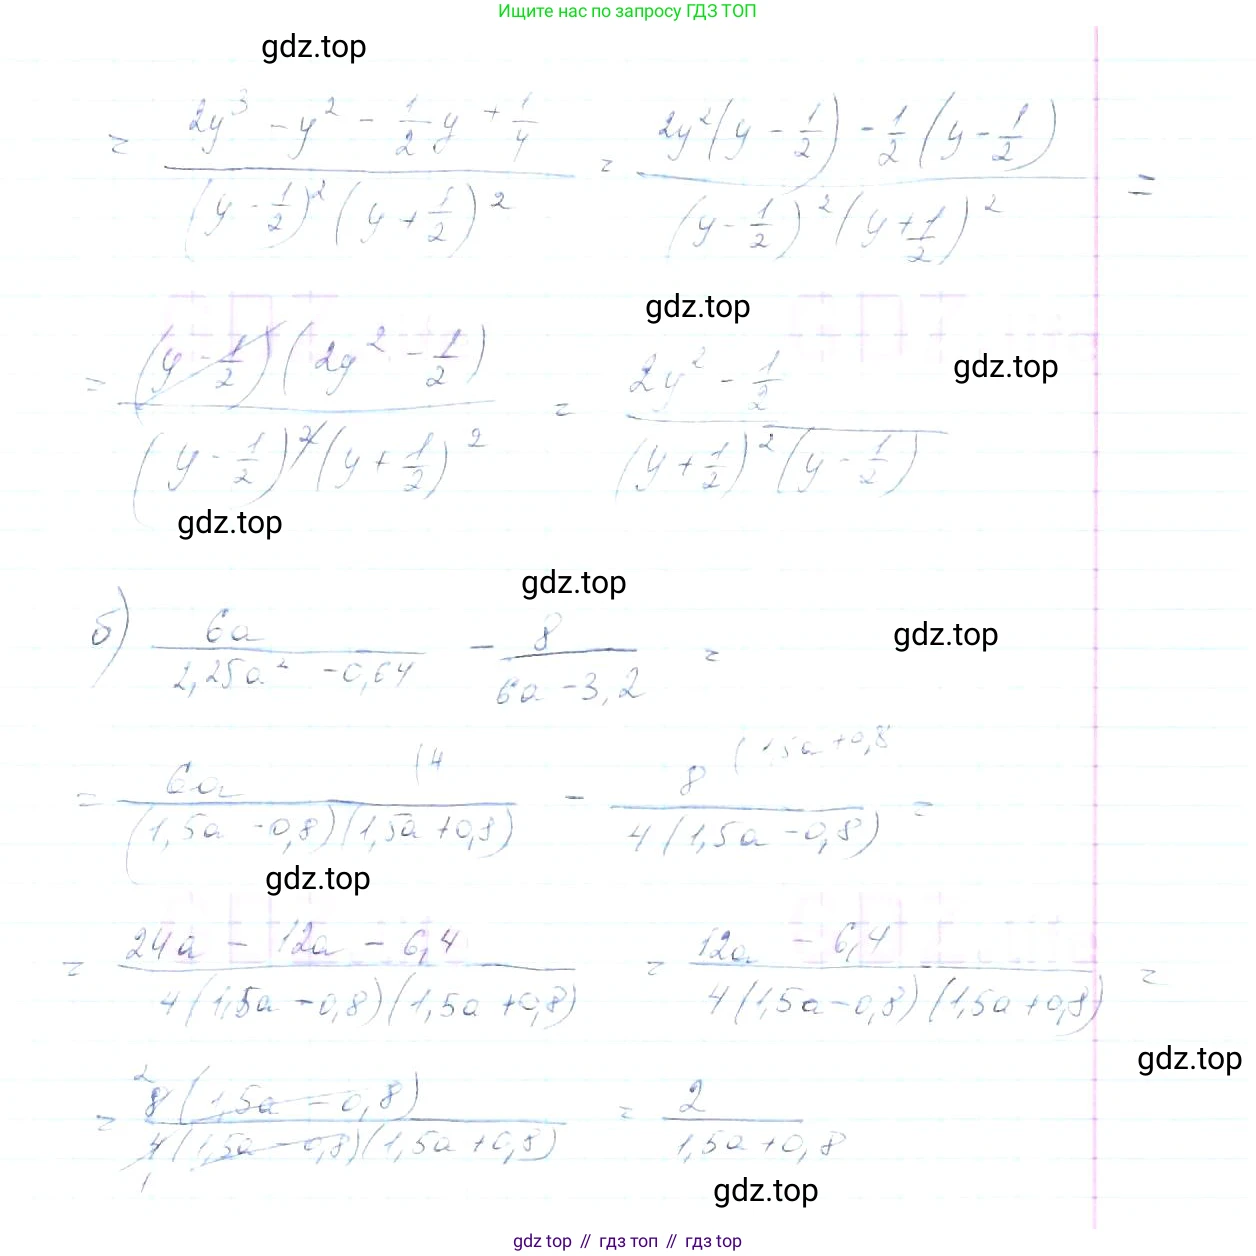 Ищите нас по запросу ГДЗ ТОП
gdz.top
= (2y³ - y² - 1/2 y + 1/4) / ((y - 1/2)² (y + 1/2)²) = (2y² (y - 1/2) - 1/2 (y - 1/2)) / ((y - 1/2)² (y + 1/2)²) =
gdz.top
gdz.top
= ((y - 1/2) (2y² - 1/2)) / ((y - 1/2)² (y + 1/2)²) = (2y² - 1/2) / ((y + 1/2)² (y - 1/2))
gdz.top
gdz.top
gdz.top
б) 6a / (2,25a² - 0,64) - 8 / (6a - 3,2) =
= 6a (4 / ((1,5a - 0,8)(1,5a + 0,8)) - 8 (1,5a + 0,8 / (4(1,5a - 0,8)) =
gdz.top
= (24a - 12a - 6,4) / (4(1,5a - 0,8)(1,5a + 0,8)) = (12a - 6,4) / (4(1,5a - 0,8)(1,5a + 0,8)) =
gdz.top
= 2 8(1,5a - 0,8) / (4(1,5a - 0,8)(1,5a + 0,8)) 1 = 2 / (1,5a + 0,8)
gdz.top
gdz top // гдз топ // gdz top